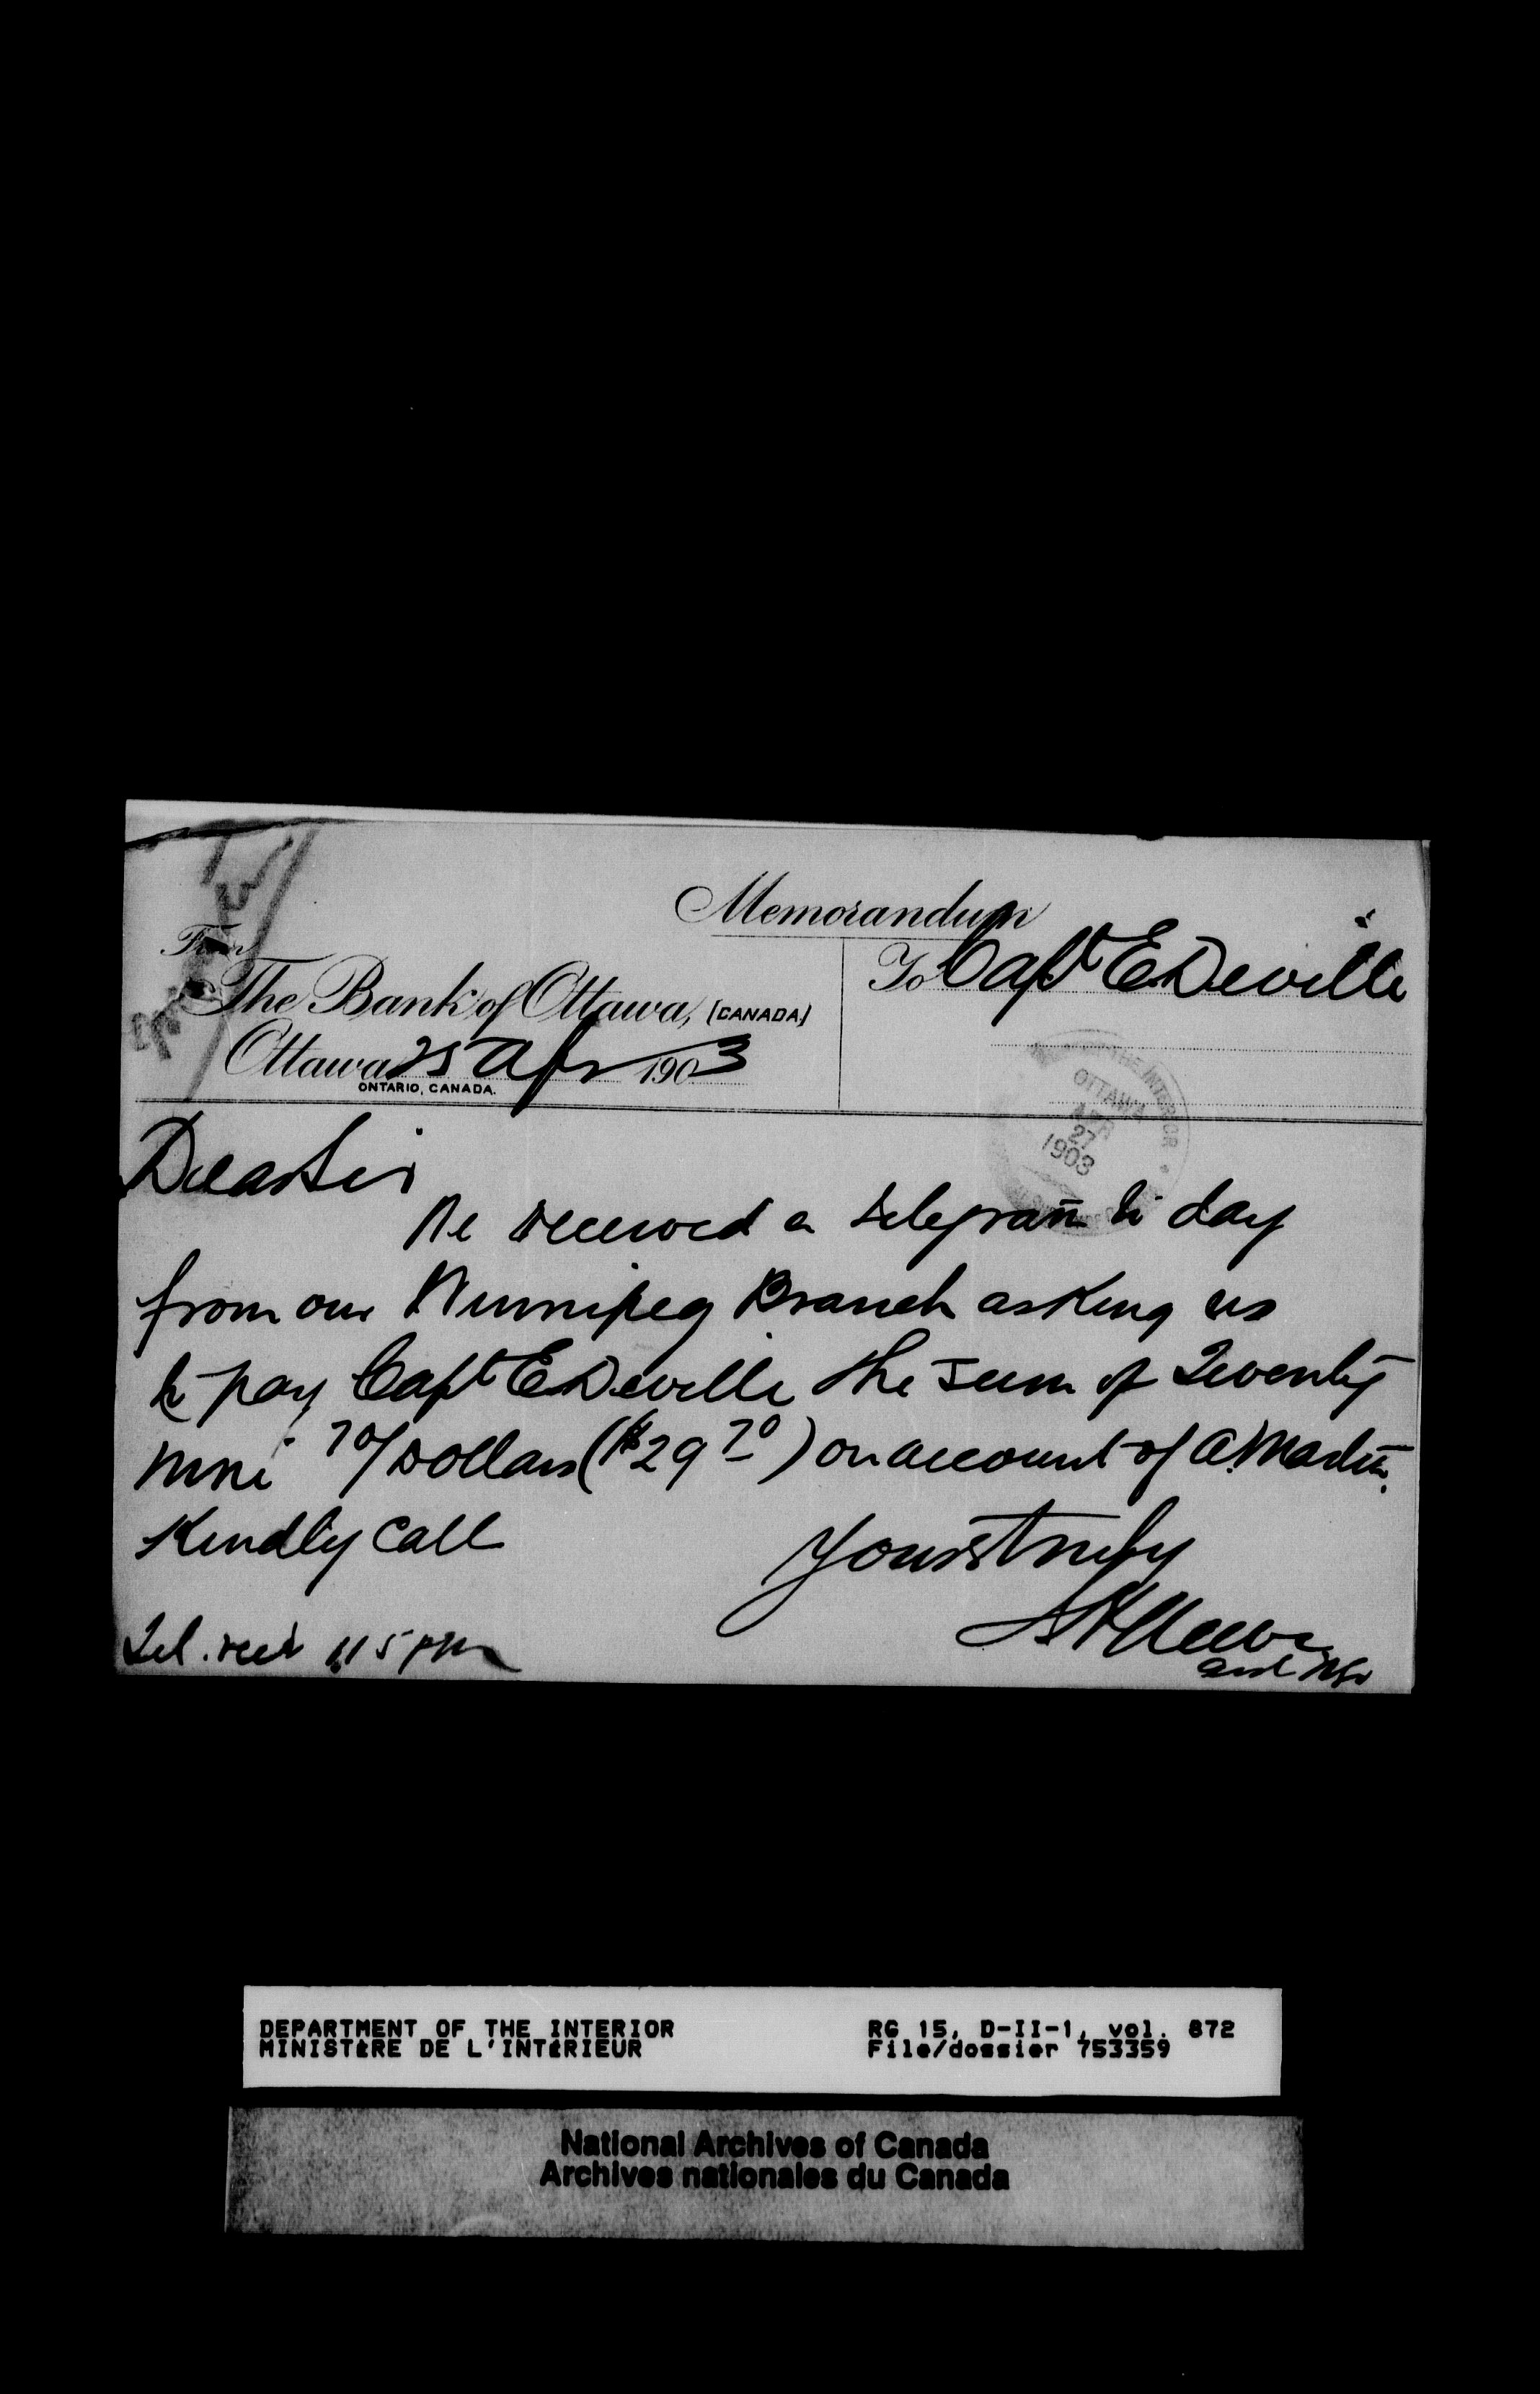 Memorandum
From
The Bank of Ottawa, (CANADA)
Ottawa 25 Apr 1903
ONTARIO, CANADA.
To Capt E Deville
THE INTERIOR
OTTAWA
APR
27
1903
Dear Sir
We received a telegram to day
from our Winnipeg Branch asking us
to pay Capt E Deville the sum of Twenty
nine 70/ Dollars ($29 70) on account of A. Martin.
Kindly Call
Yours truly
Tel. recd 1.15 pm
asst Mgr
DEPARTMENT OF THE INTERIOR
MINISTÈRE DE L'INTÉRIEUR
RG 15, D-II-1, vol. 872
File/dossier 753359
National Archives of Canada
Archives nationales du Canada